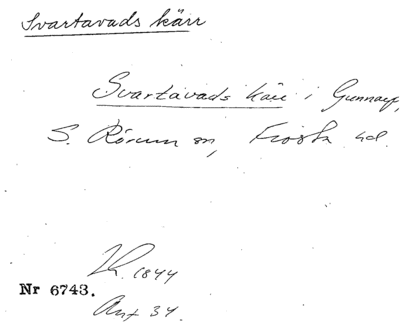 Svartavads kärr
Svartavads kärr i Gunnarp,
S. Rörum sn, Frosta hd.
Nr 6743.
1844
34